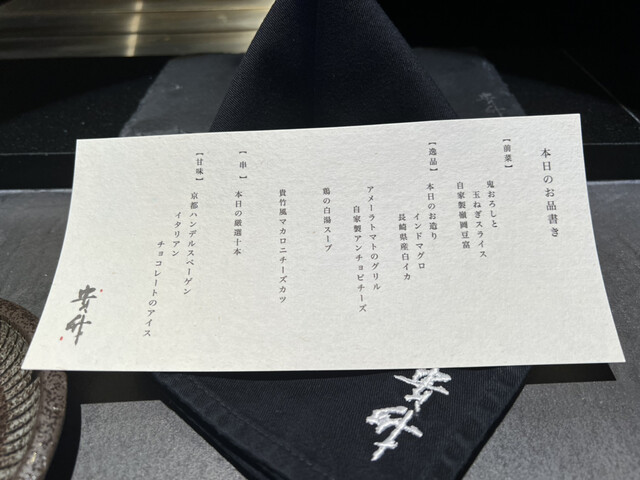 本日のお品書き
【前菜】
鬼おろしと
玉ねぎスライス
自家製嶺岡豆富
【逸品】
本日のお造り
インドマグロ
長崎県産白イカ
アメーラトマトのグリル
自家製アンチョビチーズ
鶏の白湯スープ
貴竹風マカロニチーズカツ
【串】
本日の厳選十本
【甘味】
京都ハンデルスベーゲン
イタリアン
チョコレートのアイス